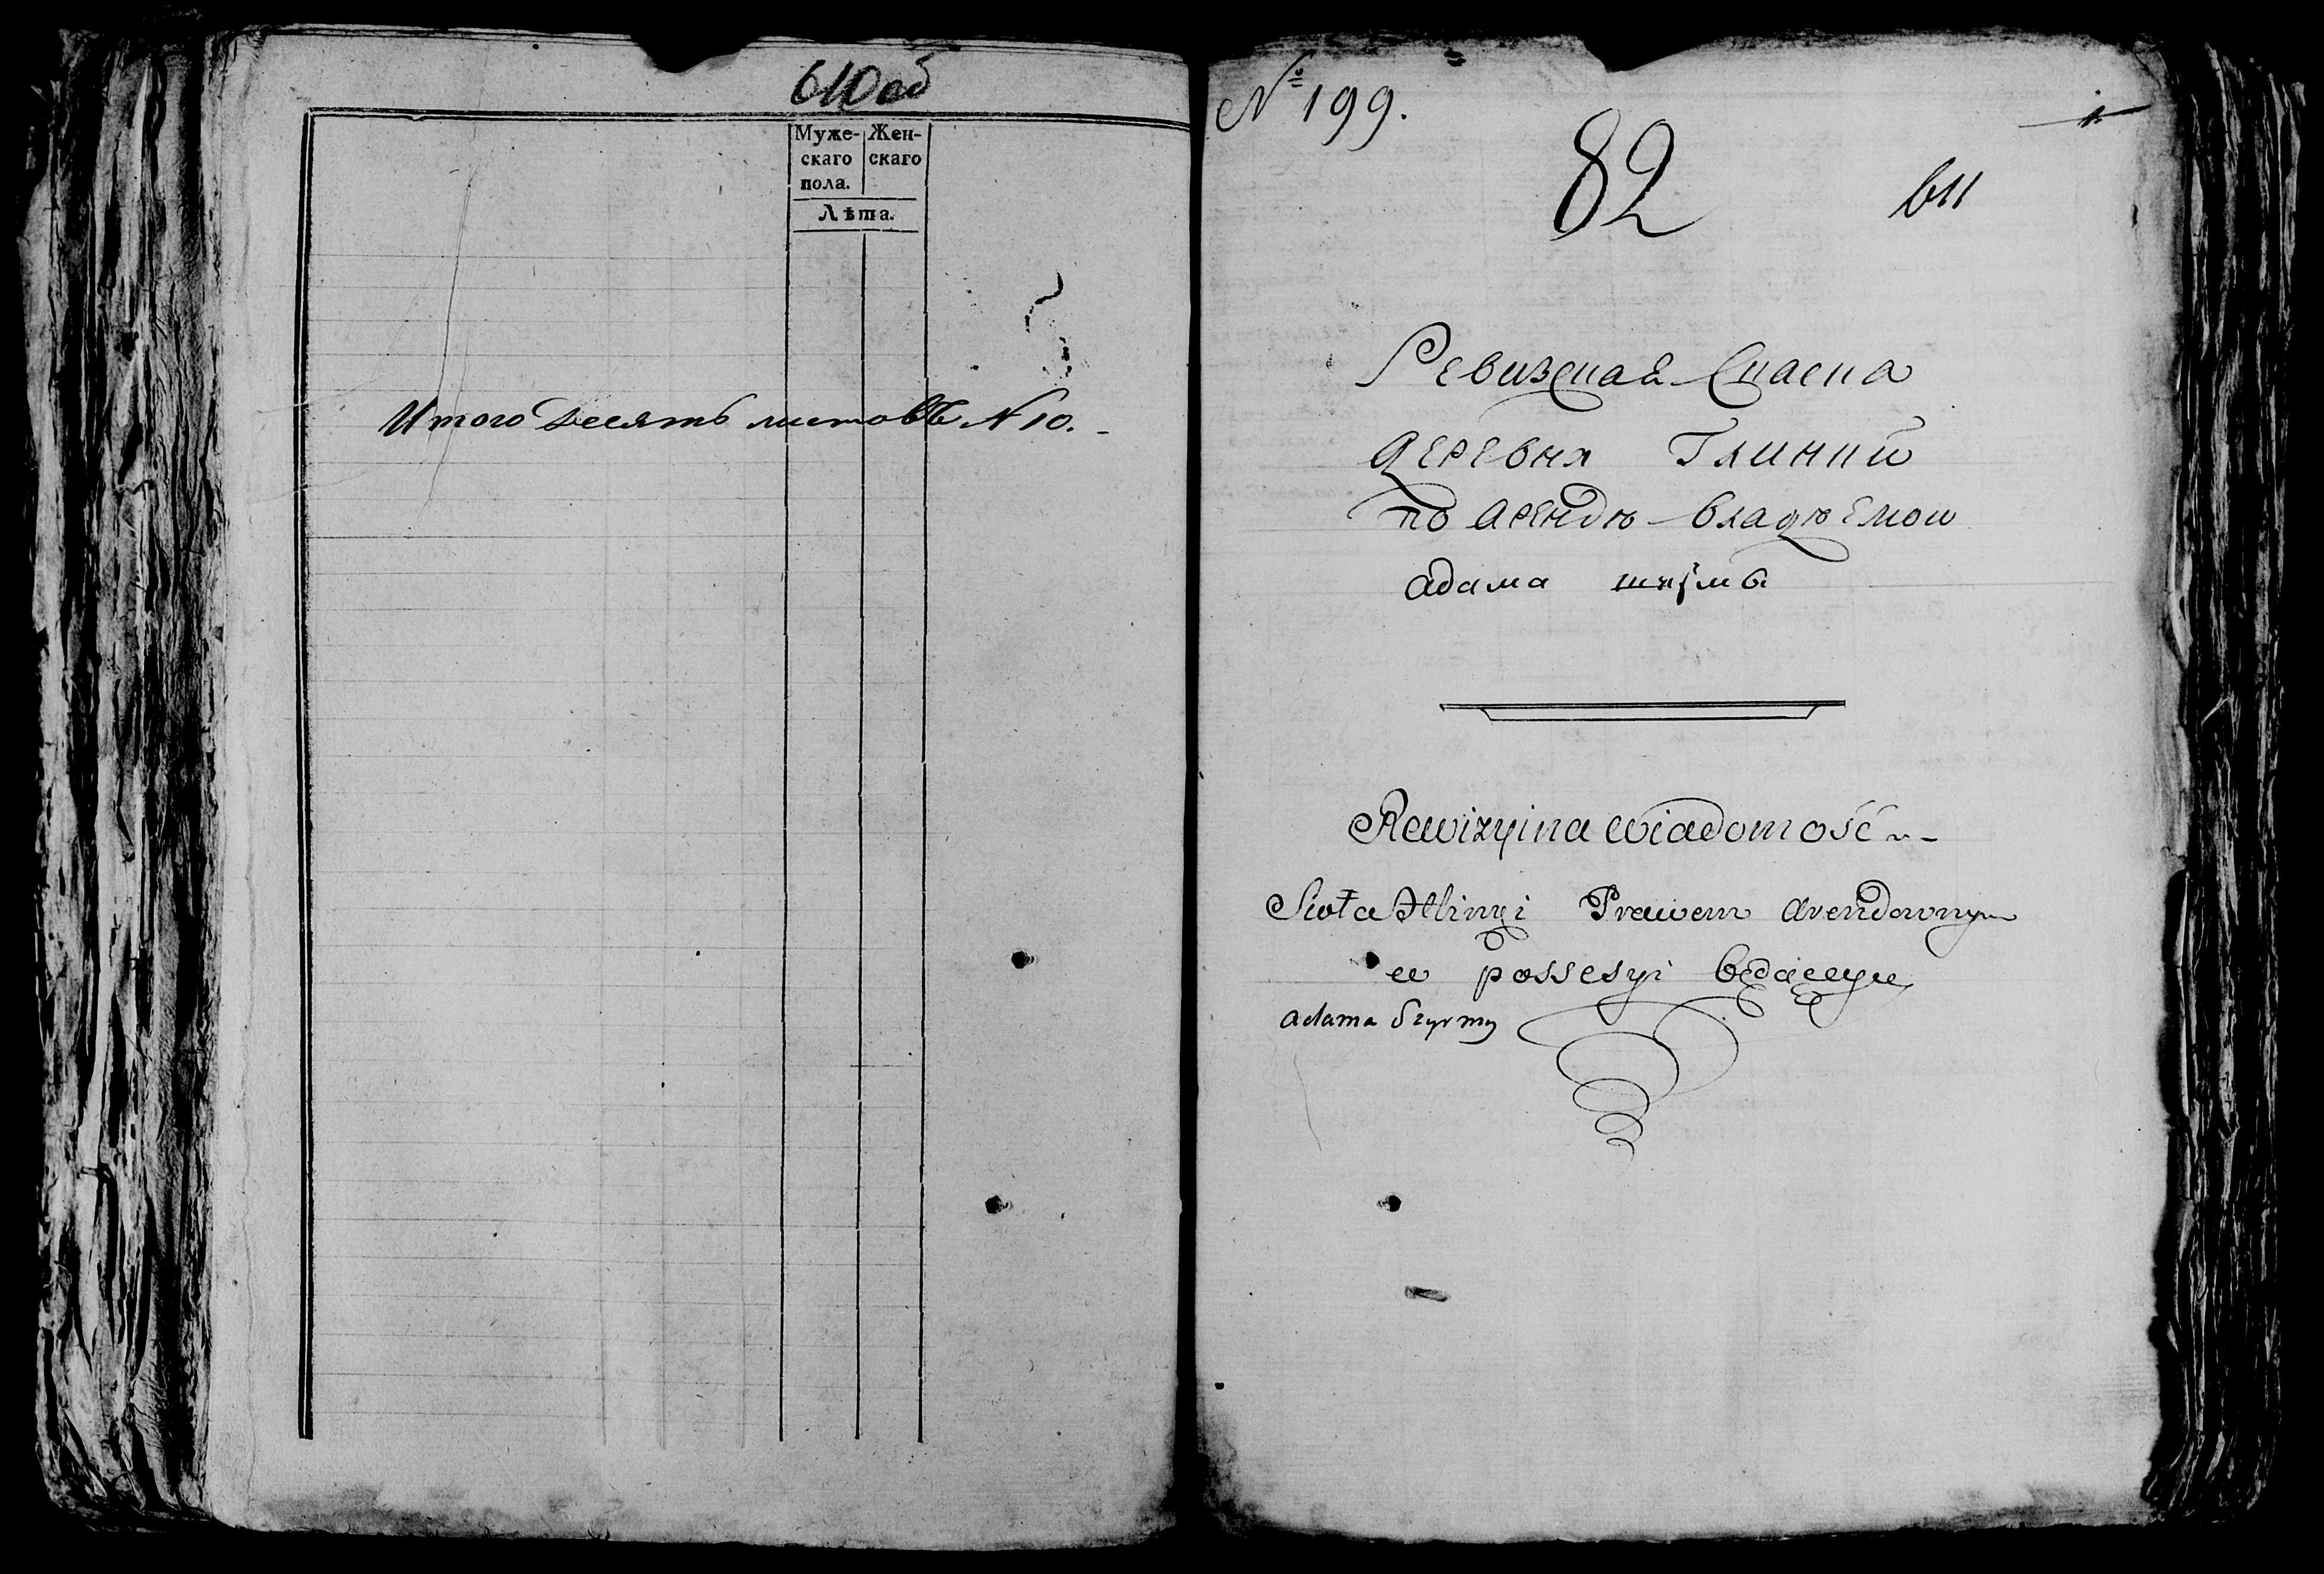 610 об
Муже- Жен-
скаго скаго
пола.
Лѣта.
Итого десять листовъ N 10.
№ 199.
1.
82
611
Ревизская Сказка
деревня Глинки
по арендѣ владѣемой
адама
Rewizyina wiadomość
Sioła Hlinki Prawem Arendownym
w possesyi będącego
Adama Szyrmy